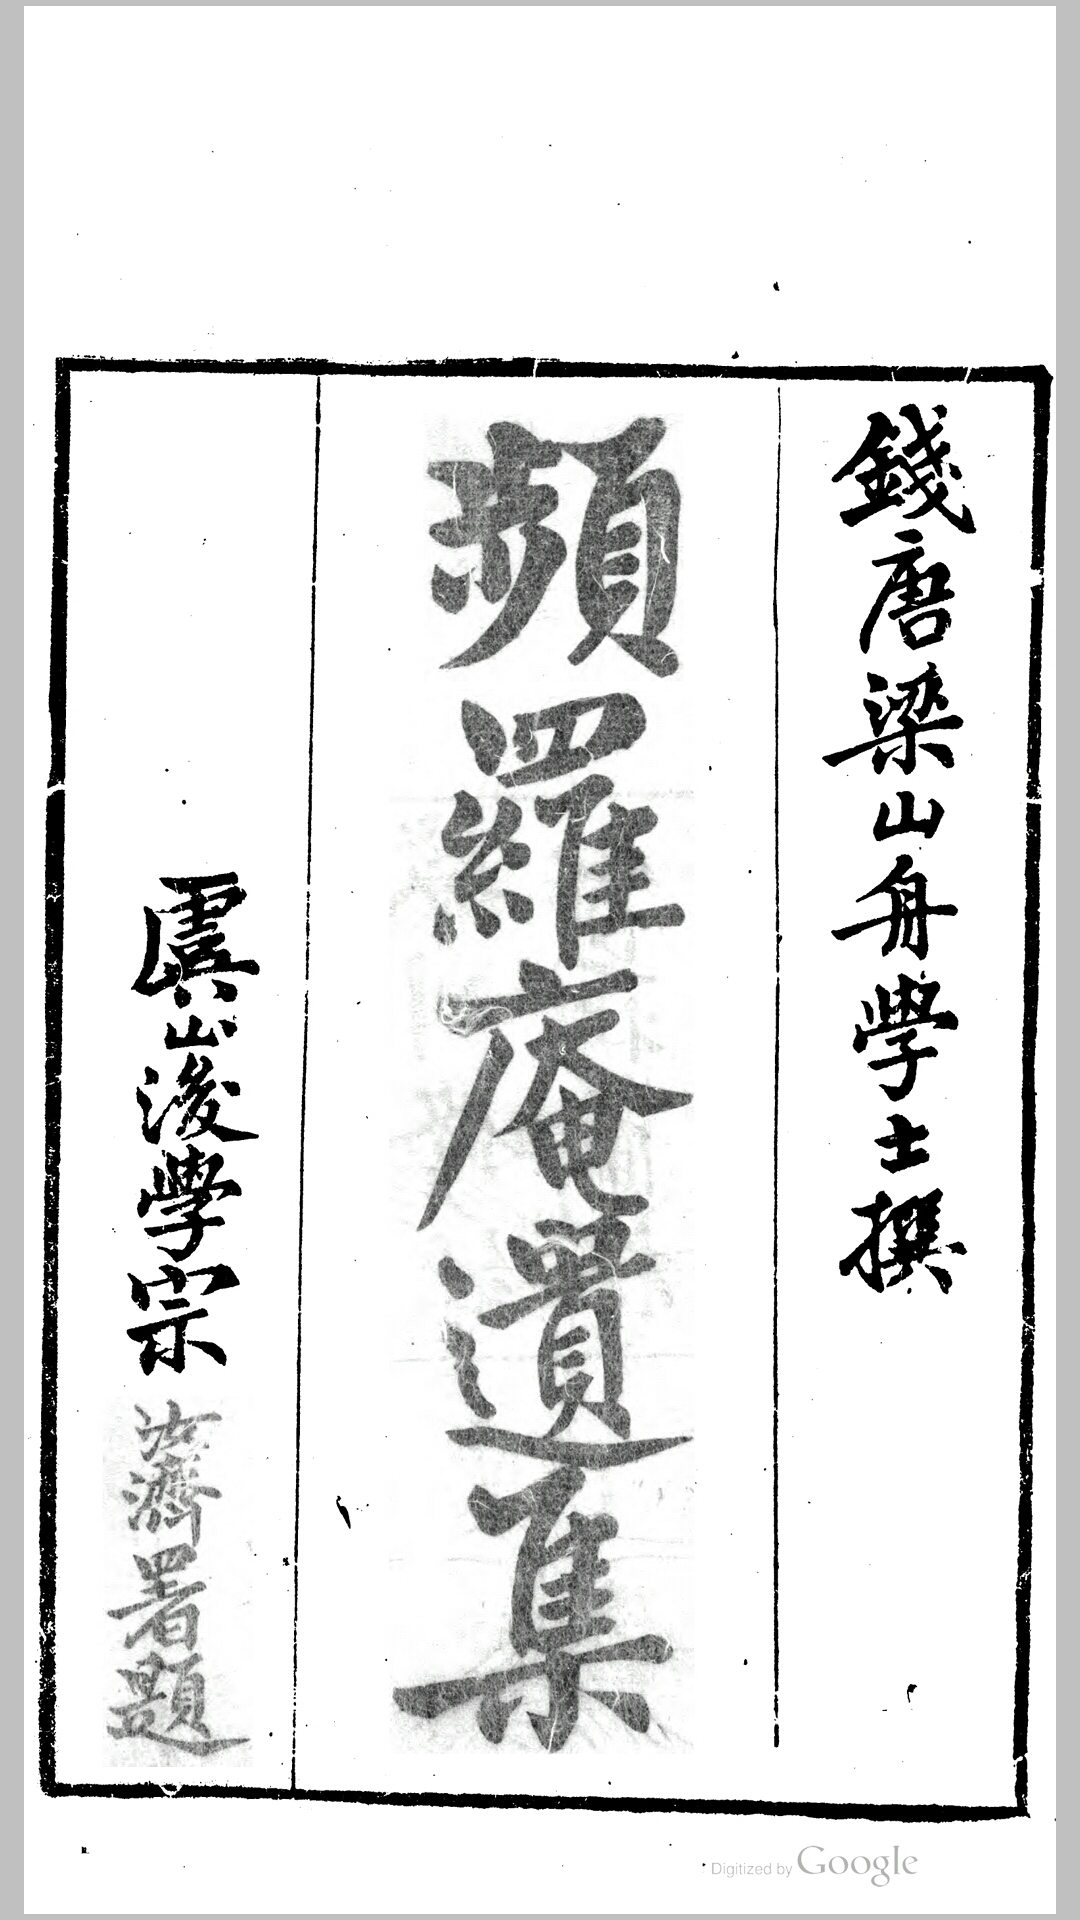 錢唐梁山舟學士撰
頻羅庵遺集
虞山後學宗
署題
Digitized by Google